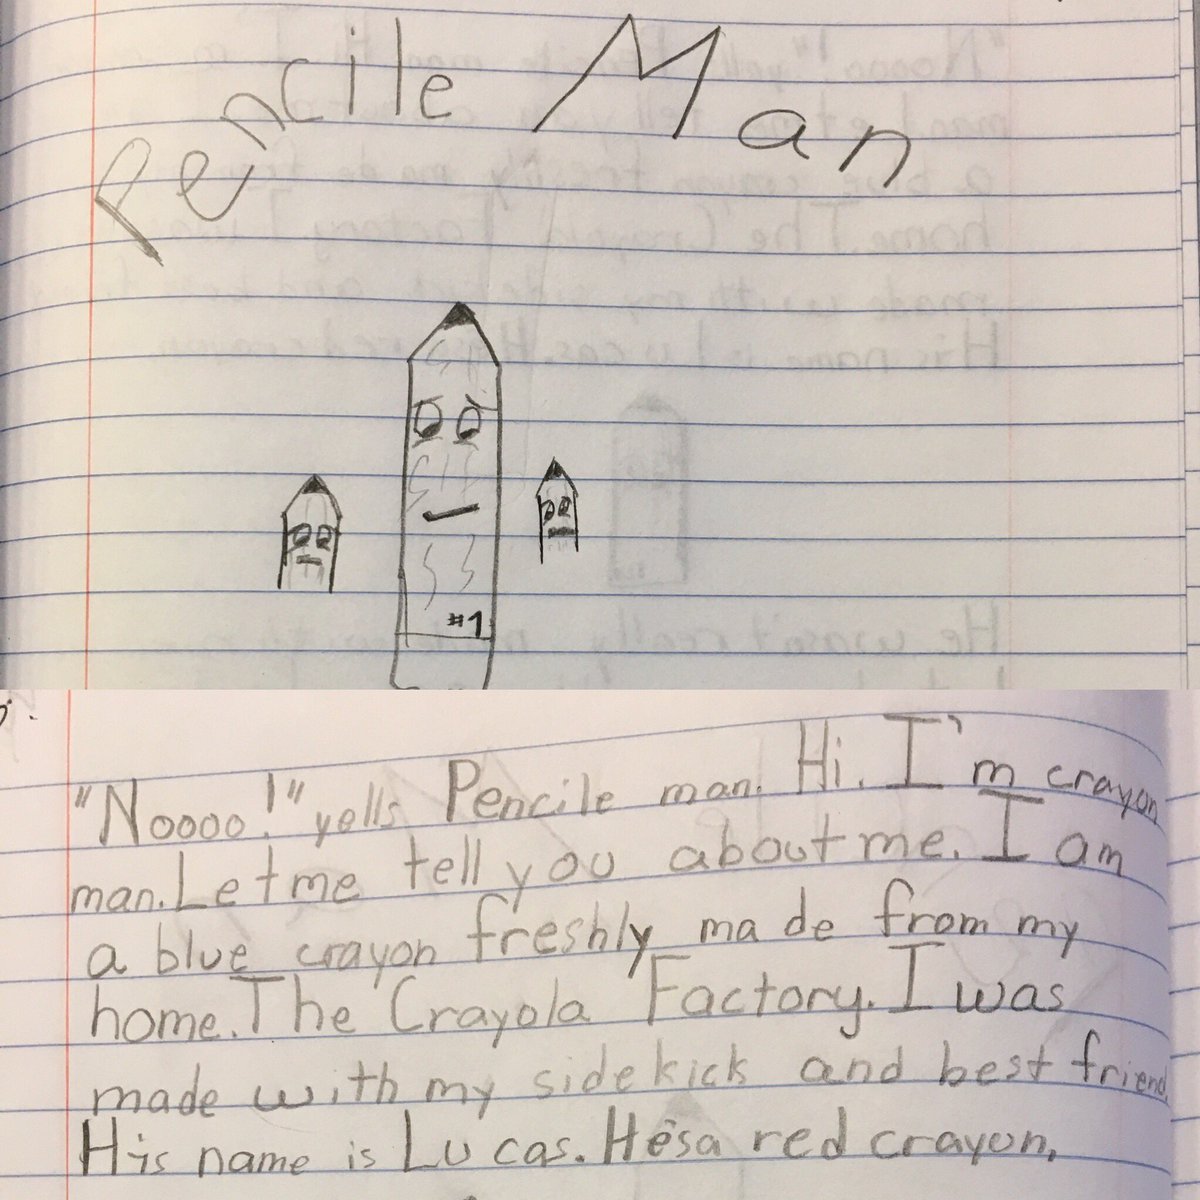 Pencile Man
#1
"Noooo!" yells Pencile man. Hi. I'm crayon
man. Let me tell you about me. I am
a blue crayon freshly made from my
home. The Crayola Factory. I was
made with my sidekick and best friend.
His name is Lucas. He's a red crayon.